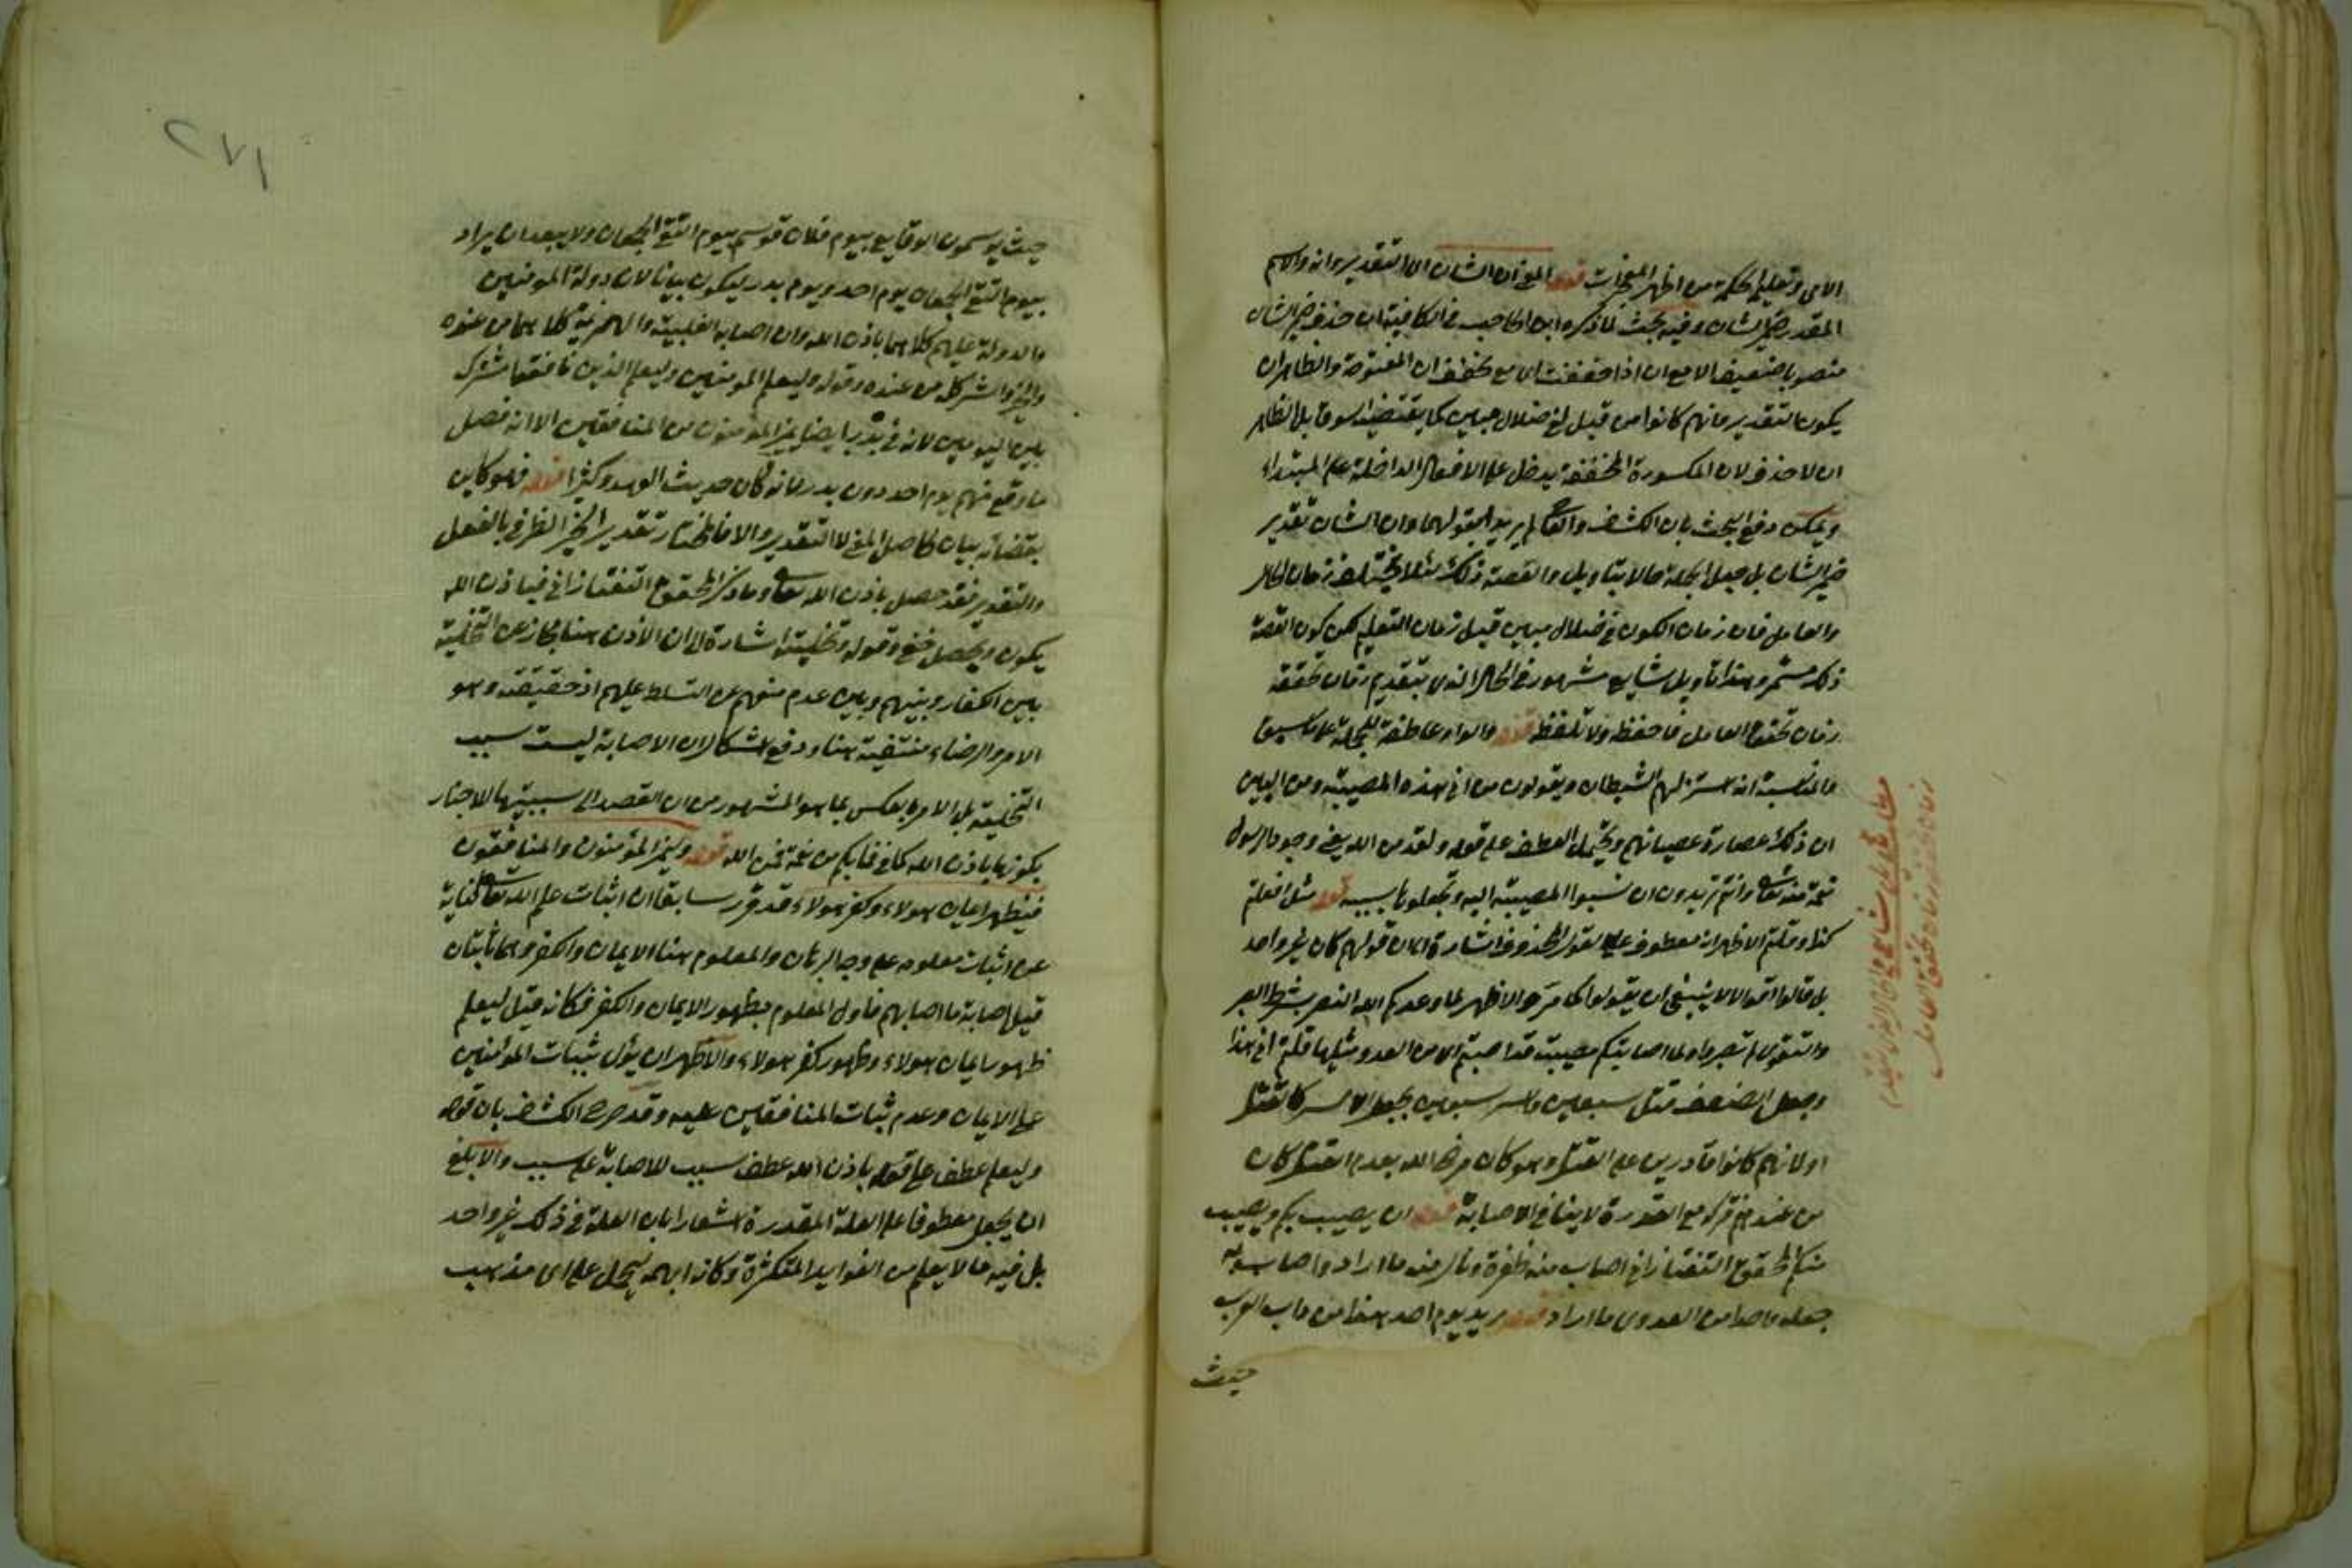 الامى وتعليم الحكمة من اظهر المعجزات قوله المعنى ان الشان الى التقدير وانه والاسم
المقدر ضمير الشان وفيه بحث لما ذكره ابن الحاجب فى الكافية ان حذف ضمير الشان
منصوبا ضعيف الا مع ان اذا خففت اى مع تخفف ان المفتوحة والظاهر ان
يكون التقدير وانهم كانوا من قبل لفى ضلال مبين كما يقتضيه سوقه بل الظاهر
ان لا حذف لان المكسورة المخففة يدخل على الافعال الداخلة على المبتداء
ويمكن دفع البحث بان الكشاف والقاضى لم يريدا بقولهما وان الشان تقدير
ضمير الشان بل جعل الجملة حالا بتاويل والقصة ذلك لئلا يختلف زمان الحال
والعامل فان زمان الكون فى ضلال مبين قبل زمان التعليم لكن كون القصة
ذلك مستمر وهذا تاويل شايع مشهور فى الحال الذى يتقدم زمان تحققه
زمان تحقق العامل فاحفظ ولا تلفظ قوله والواو عاطفة للجملة على ما سبق
والمناسبة انه استزلهم الشيطان ويقولون من انى هذه المصيبة ومن البين
ان ذلك عصارة عصيانهم ويحتمل العطف على قوله ولقد من الله يعنى وجود الرسول
نعمة منه تعالى وانتم تريدون ان تنسبوا المصيبة اليه وتجعلونها بسببه قوله مثل افعلتم
كذا وقلتم الاظهر انه معطوف على القول المحذوف اشارة الى ان قولهم كان غير واحد
بل قالوا اقوالا لا ينبغى ان يقولوا كما مر والاظهر لما وعدكم الله النصر بشرط الصبر
والتقوى لم تصبروا ولما اصابتكم مصيبة قد اصبتم الى من العدو مثليها قلتم انى هذا
وجعل الضعف قتل سبعين واسر سبعين بجعل الاسر كالقتل
او لانهم كانوا قادرين على القتل وهو كان مرضى الله بعدم القتل كان
من عندهم فتركه مع القدرة لا ينافى الاصابة قوله ان يصيب بكم ويصيب
منكم المحقق التفتازانى اصاب منه ظفره ونال منه ما اراد واصاب به
جعله واصدا من العدوى ما اراد قوله يريد يوم احد هذا من داب العرب
حيث
هذا تاويل شايع فى الحال الذى يتقدم
زمان تحققه زمان تحقق العامل
٢٧١
حيث يوسمون الوقايع بيوم فلان قوسم بيوم التقى الجمعان ولا يبعد ان يراد
بيوم التقى الجمعان يوم احد ويوم بدر ليكون بيانا لان دولة المؤمنين
والدولة عليهم كلاهما باذن الله وان اصابه الغلبة والهزيمة كلاهما من عنده
والخير والشر كل من عنده وقوله وليعلم المؤمنين وليعلم الذين نافقوا مشترك
بين اليومين لانه فى بدر ايضا يميز المؤمنون من المنافقين الا انه فصل
ما وقع منهم يوم احد دون بدر لما نه كان حديث العهد وكثيرا قوله فهو كاين
بقضائه بيان لحاصل المعنى لا التقدير والا فالمختار تقدير الخبر الظرف بالفعل
والتقدير فقد حصل باذن الله تعالى وما ذكر المحقق التفتازانى فباذن الله
يكون ويحصل خفى وقوله وتخليته اشارة الى ان الاذن هنا مجاز عن التخلية
بين الكفار وبينهم وبين عدم منعهم عن التسلط عليهم اذ حقيقته وهو
الامر والرضاء منتفية هنا ودفع اشكال ان الاصابة ليست سبب
التخلية بل الامر بالعكس بما هو المشهور من ان القصد الى سببيتها للاخبار
بكونها باذن الله كما فى فما بكم من نعمة فمن الله قوله وليتميز المؤمنون والمنافقون
فيظهر ايمان هولاء وكفر هولاء قد قرر سابقا ان اثبات علم الله تعالى كناية
عن اثبات معلومه على وجه البرهان والمعلوم هنا الايمان والكفر وهما ثابتان
قبل اصابة ما اصابهم فاول المعلوم بظهور الايمان والكفر فكانه قيل ليعلم
ظهور ايمان هولاء وظهور كفر هولاء والاظهر ان يؤل بثبات المؤمنين
على الايمان وعدم ثبات المنافقين عليه وقد صرح الكشاف بان قوله
وليعلم عطف على قوله باذن الله عطف سبب للاصابة على سبب والابلغ
ان يجعل معطوفا على العلة المقدرة اشعارا بان العلة فى ذلك غير واحد
بل فيه ما لا يعلم من الفوايد المتكثرة وكانه ابهمه ليحمل على اى مذهب